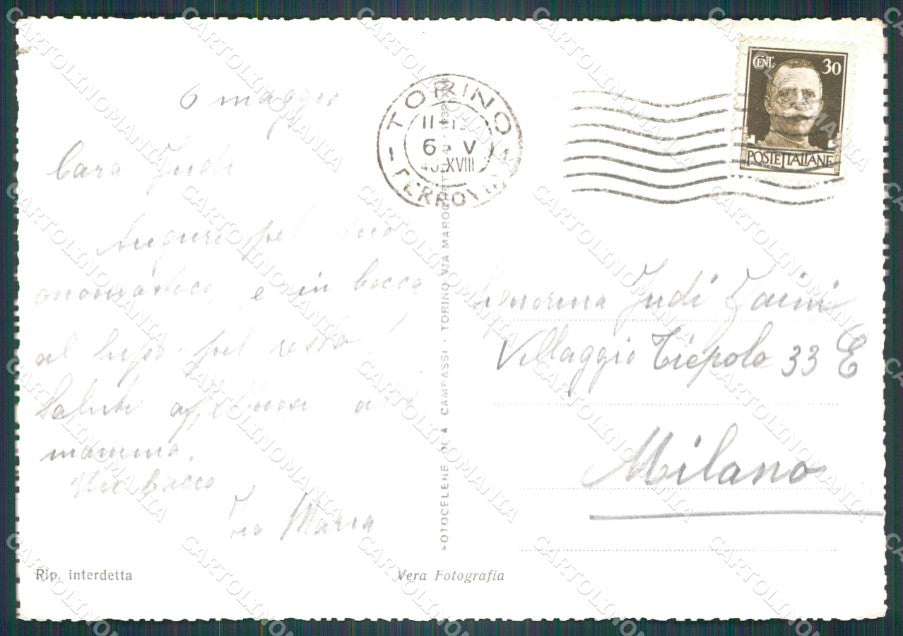 6 maggio
Cara Judi
Auguri pel tuo
onomastico, e in bocca
al lupo pel resto!
Saluti affettuosi alla
mamma.
Un bacio
Zia Maria
TORINO
6 V
40 XVIII
FERROVIA
CENT. 30
POSTE ITALIANE
Signorina Judi Zaini
Villaggio Tiepolo 33 E
Milano
FOTOCELERE DI A. CAMPASSI - TORINO VIA
Rip. interdetta
Vera Fotografia
CARTOLINOMANIA